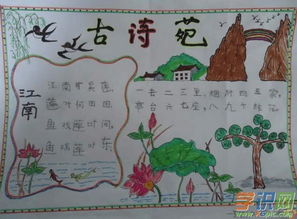 古诗苑
江南
江南可采莲，
莲叶何田田。
鱼戏莲叶间，
鱼戏莲叶东
一去二三里，烟村四五家，
亭台六七座，八九十枝花
学识网